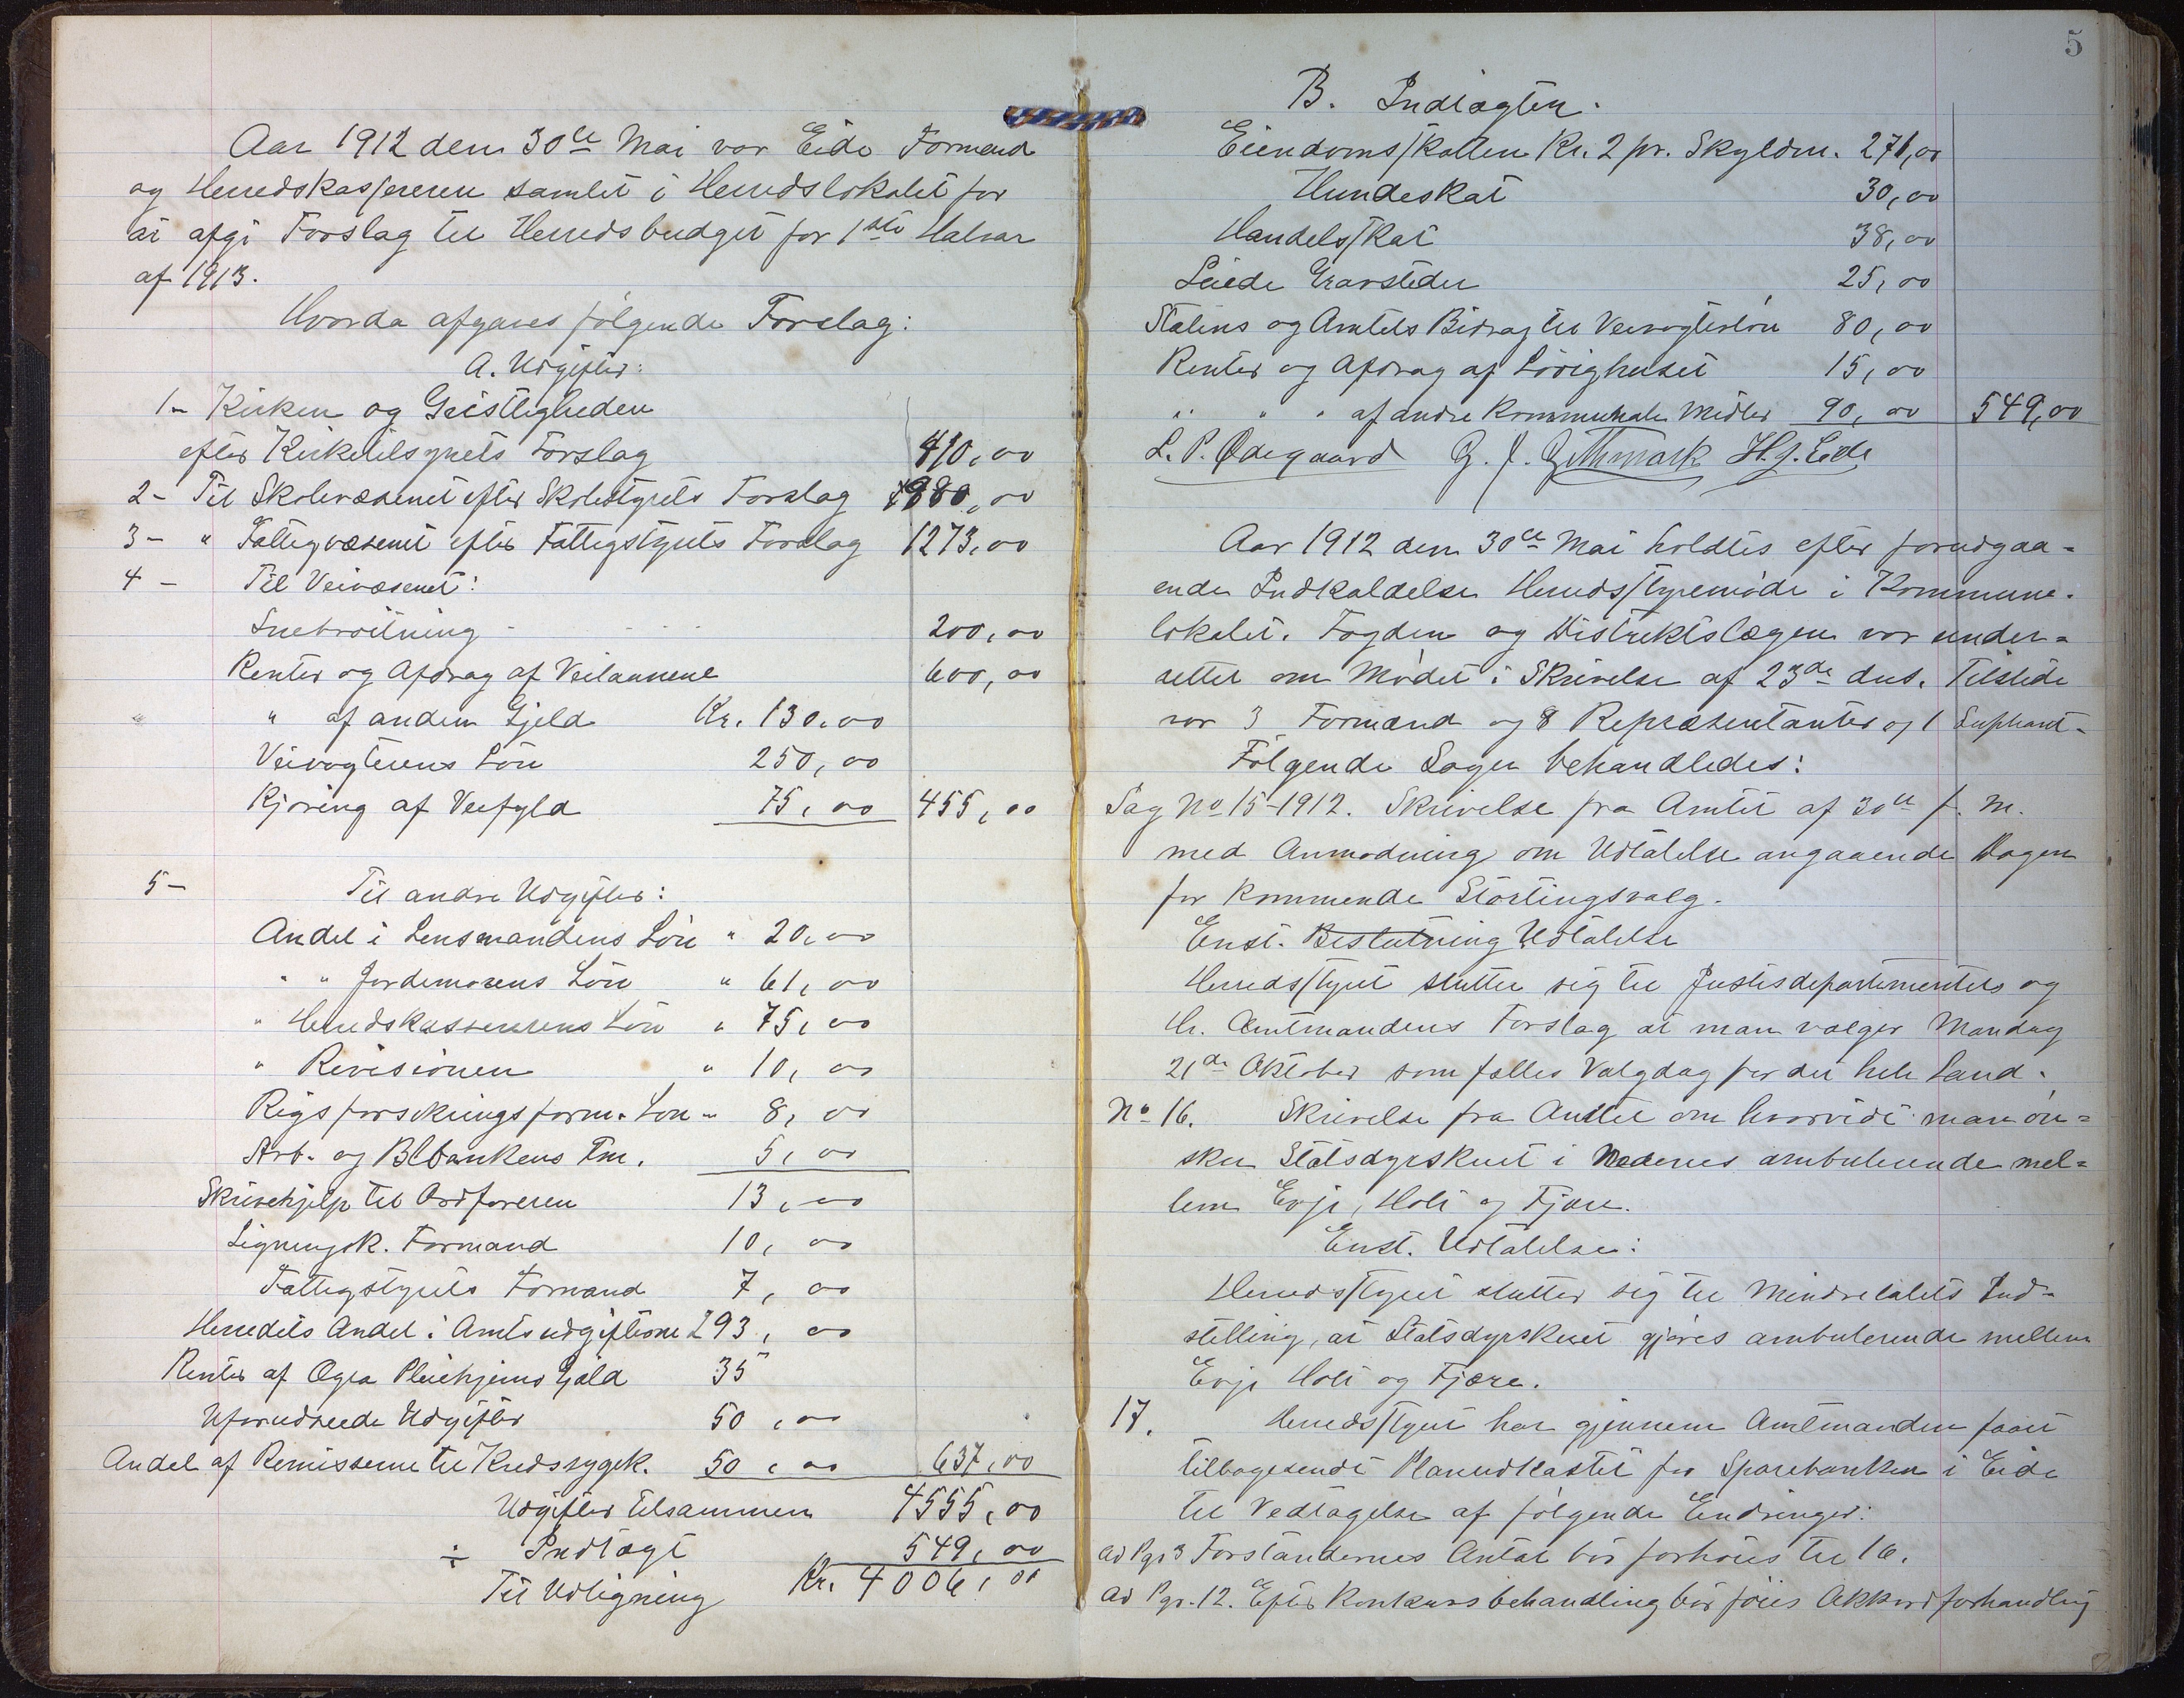 Aar 1912 den 30te Mai var Eide Formænd
og Herredskasjereren samlet i Herredslokalet for
at afgi Forslag til Herredsbudget for 1ste Halvaar
af 1913.
Hvorda afgaves følgende Forslag:
A. Udgifter:
1- Kirken og Geistligheden
efter Kirketilsynets Forslag 410,00
2- Til Skolevæsenet efter Skolestyrets Forslag 980,00
3- " Fattigvæsenet efter Fattigstyrets Forslag 1273,00
4- Til Veivæsenet:
Snebrøitning 200,00
Renter og Afdrag af Veilaanene 600,00
" af anden Gjeld Kr. 130,00
Veivogterens Løn 250,00
Kjøring af Veifyld 75,00 455,00
5- Til andre Udgifter:
Andel i Lensmandens Løn " 20,00
" " Jordemorens Løn " 61,00
" Herredskassererens Løn " 75,00
" Revisionen " 10,00
Rigsforsikringsform. Løn " 8,00
Arb. og Bbankens Fm. 5,00
Skrivehjelp til Ordføreren 13,00
Ligningsk. Formand 10,00
Fattigstyrets Formand 7,00
Herredets Andel i Amtsudgifterne 293,00
Renter af Ogra Pleiehjems Gjæld 35
Uforudseede Udgifter 50,00
Andel af Remisserne til Kredssygek. 50,00 637,00
Udgifter tilsammen 4555,00
÷ Indtægt 549,00
Til Udligning Kr. 4006,00
5
B. Indtægten.
Eiendomsskatten Kr. 2 pr. Skyldm. 271,00
Hundeskat 30,00
Handelsskat 38,00
Leiede Gravsteder 25,00
Statens og Amtets Bidrag til Veivogterløn 80,00
Renter og Afdrag af Lovighuset 15,00
" " " af andre Kommunale Midler 90,00 549,00
L. P. Ødegaard G. J. Grthmark H. J. Eide
Aar 1912 den 30te Mai holdtes efter forudgaa-
ende Indkaldelse Herredsstyremøde i Kommune-
lokalet. Fogden og Distriktslægen var under-
rettet om Mødet i Skrivelse af 23de ds. Tilstede
var 3 Formænd og 8 Repræsentanter og 1 Supleant.
Følgende Sager behandledes:
Sag No 15-1912. Skrivelse fra Amtet af 30te f. M.
med Anmodning om Udtalelse angaaende Dagen
for kommende Stortingsvalg.
Enst. Beslutning Udtalelse
Herredsstyret slutter sig til Justisdepartementets og
Hr. Amtmandens Forslag at man vælger Mandag
21de Oktober som fælles Valgdag for det hele Land.
No 16. Skrivelse fra Amtet om hvorvidt man øn-
sker Statsdyrskuet i Nedenes ambulerende mel-
lem Evje, Holt og Fjære.
Enst. Udtalelse:
Herredsstyret slutter sig til Mindretalets Ind-
stilling, at Statsdyrskuet gjøres ambulerende mellem
Evje Holt og Fjære.
17. Herredsstyret har gjennem Amtmanden faaet
tilbagesendt Planudkastet for Sparebanken i Eide
til Vedtagelse af følgende Endringer:
Ad Pgr 3 Forstandernes Antal bør forhøies til 16.
Ad Pgr. 12. Efter Konkursbehandling bør føies Akkordforhandling